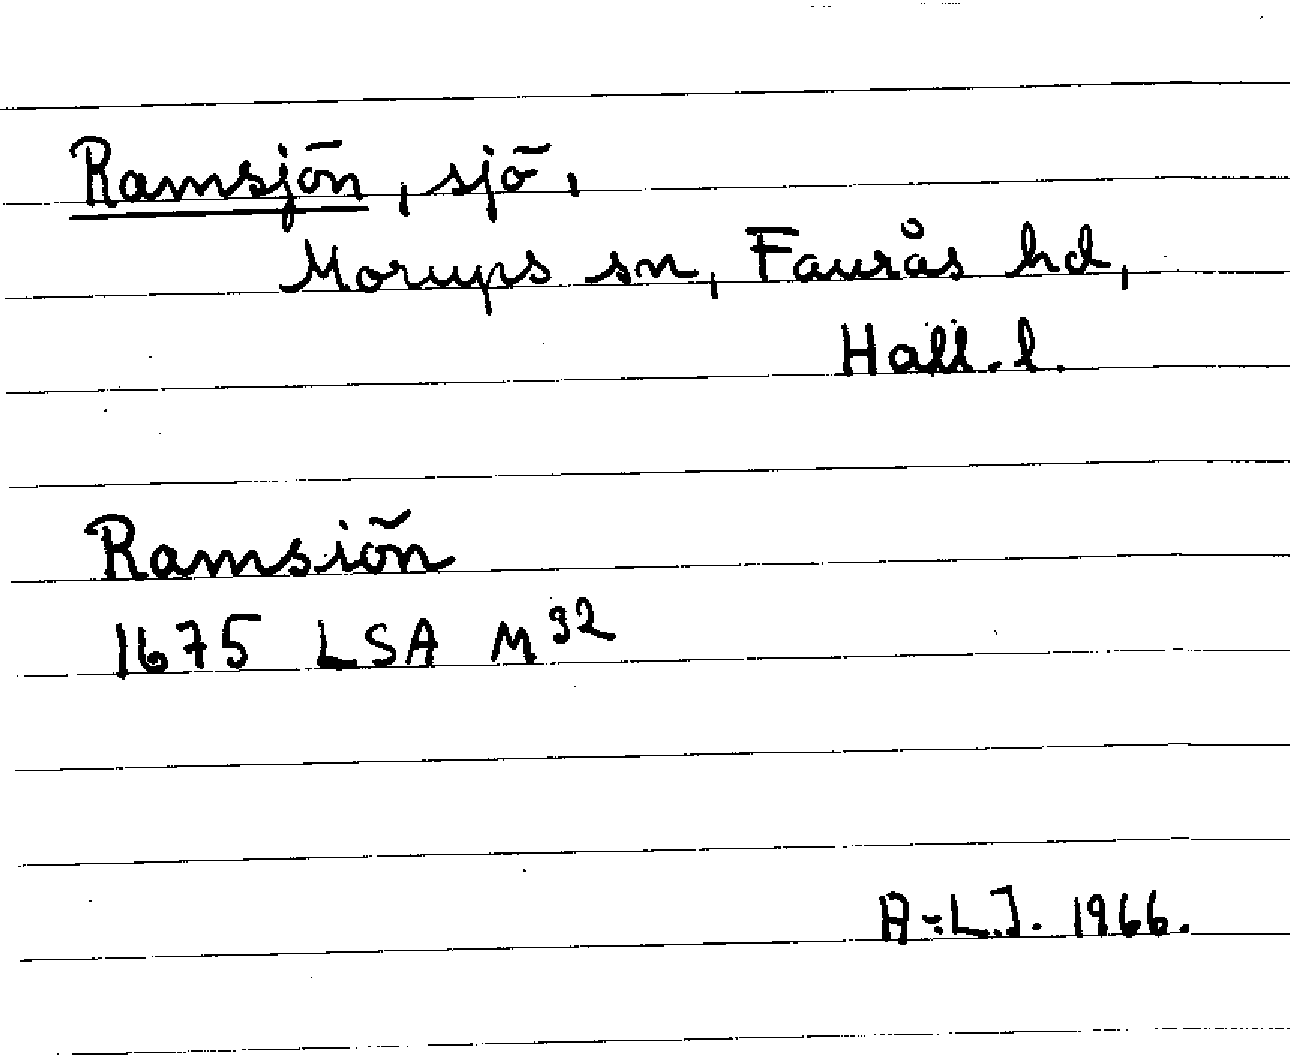 Ramsjön, sjö,
Morups sn, Faurås hd,
Hall. l.
Ramsiön
1675 LSA M32
A-L.J. 1966.